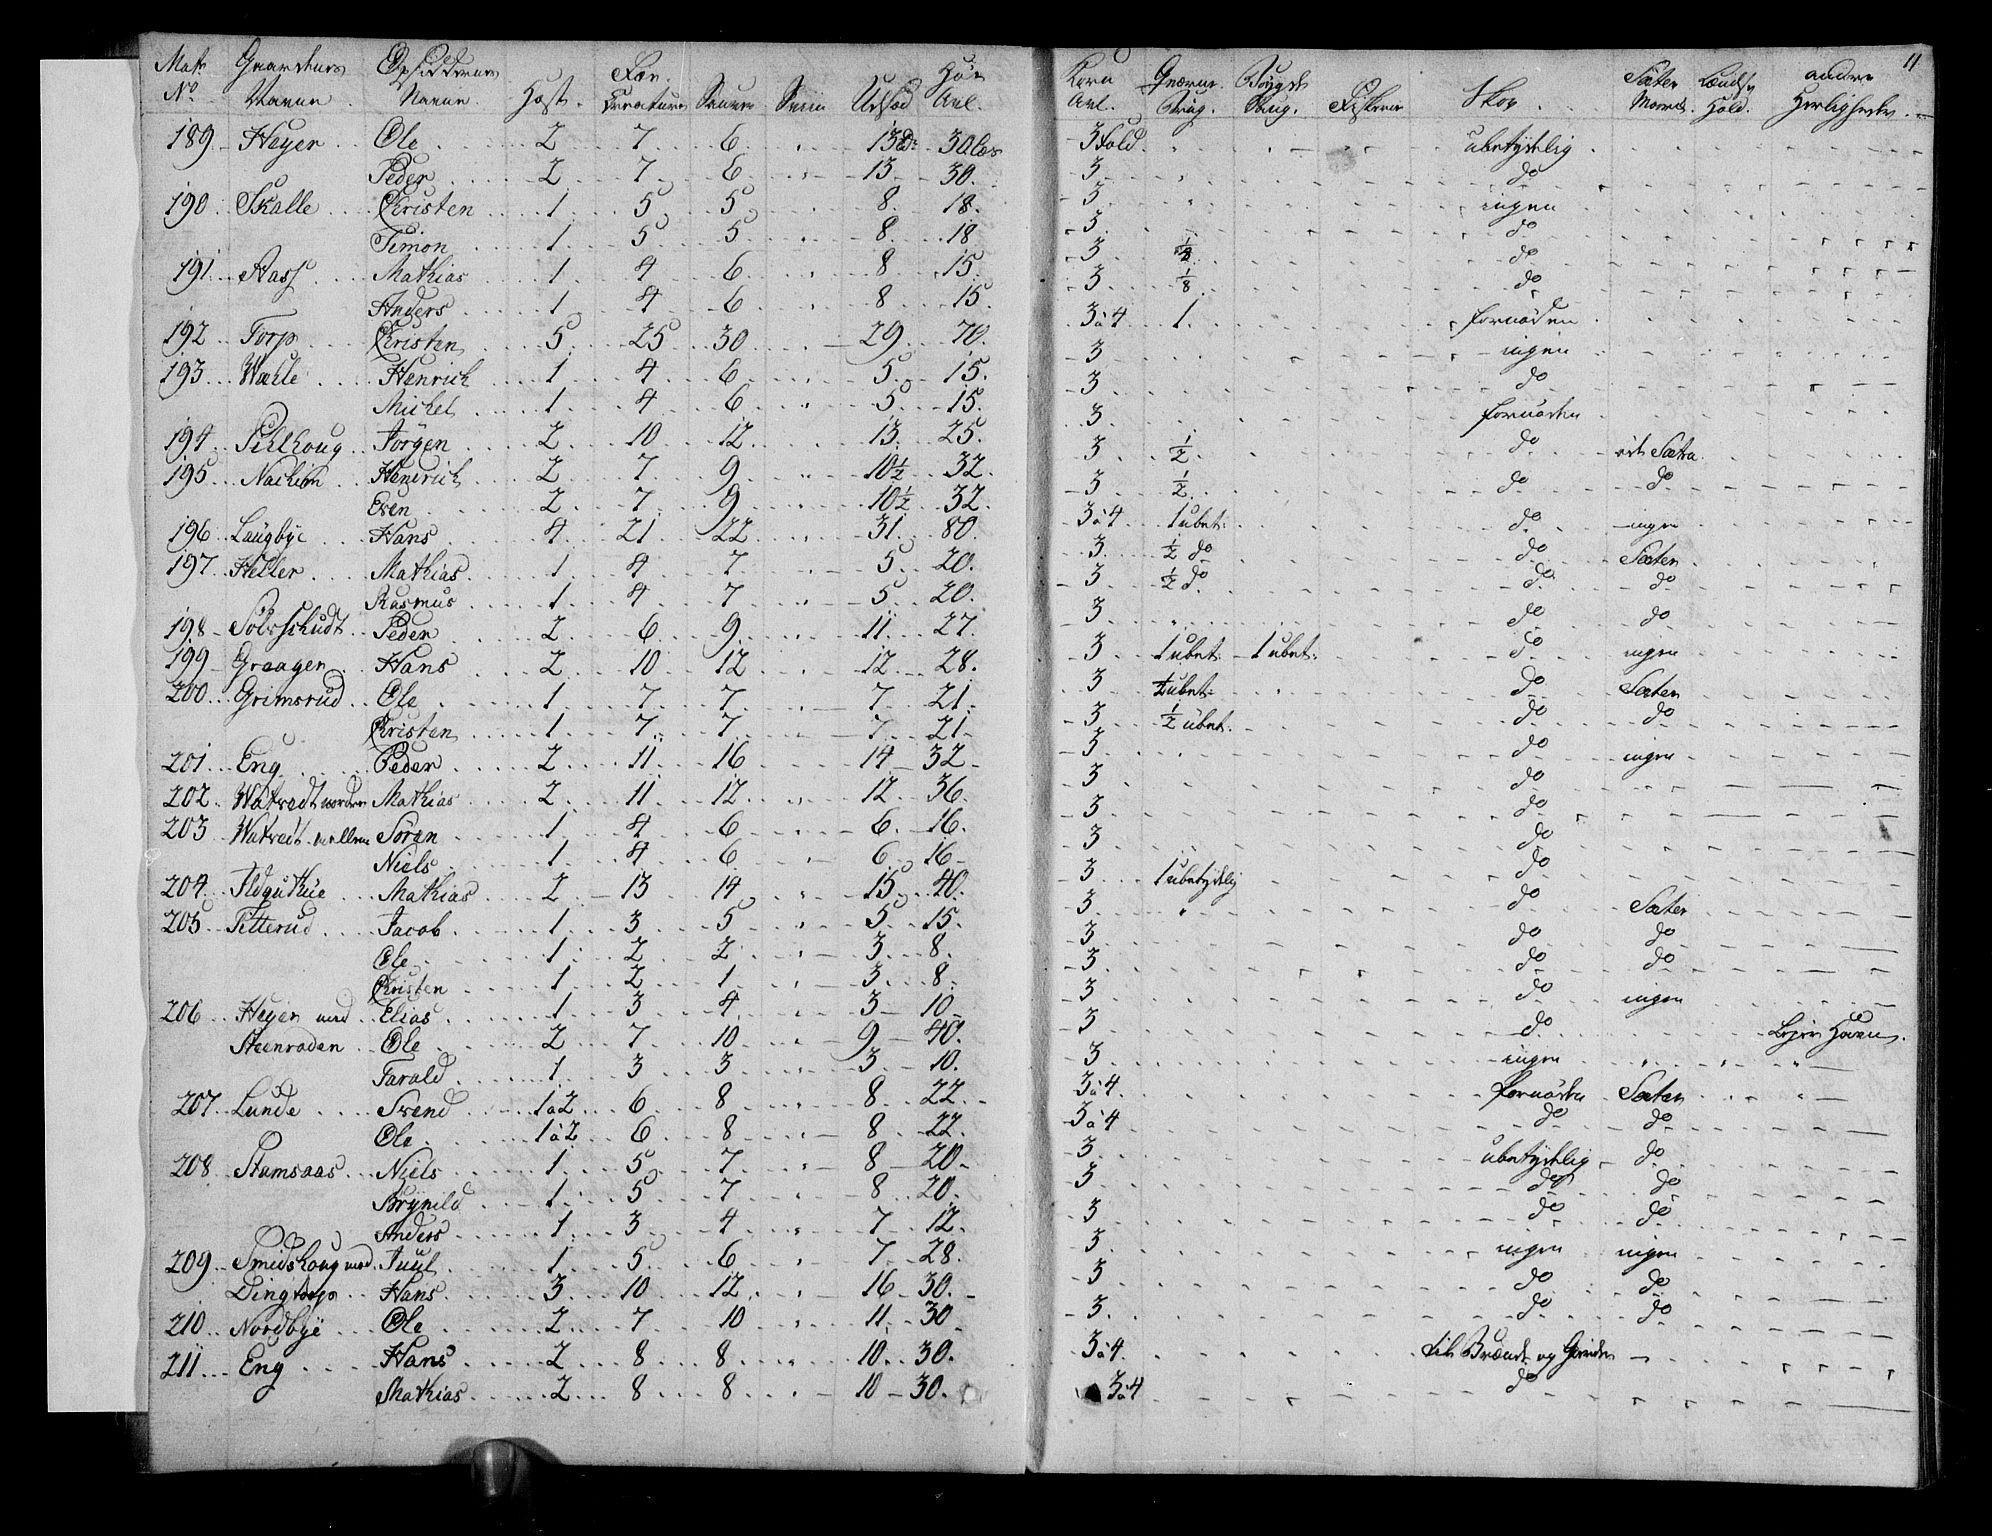 11
Mat: Gaardens Opsiddernes Fæe Høe Korn Qværne Bøygde Sæter Lændsf andre
No Navne Navne Hest. Creature Sauer Sviin Udsæd Avl. Avl. Brug. Brug. Fiskerie Skov. Hold. Herligheder.
189 Heyer Ole 2 7 6 " 13 30 læs 3 Fold ubetydelig
Peder 2 7 6 " 13 30. 3 do
190 Skalle Christen 1 5 5 8 18. 3 ingen
Simon 1 5 5 8 18 3 do
191 Aass Mathias 1 4 6 8 15 3 do
Anders 1 4 6 8 15 3 1/8 do
192 Torp Christen 5 25 30 29 70. 3 à 4 1. fornøden
193 Wæhle Henrich 1 4 6 5 15. 3 ingen
Michel 1 4 6 5 15. 3 do
194 Jörgen 2 10 12 13 25. 3 fornøden
195 Henrich 2 7 9 10 1/2 32 3 1/2 do Sætra
Even 2 7 9 10 1/2 32. 3 1/2 do do
196 Laugbye Hans 4 21 22 31. 80. 3 à 4 1 ubet: do ingen
197 Heller Mathias 1 4 7 5 20. 3 1/2 do do Sæter
Rasmus 1 4 7 5 20. 3 1/2 do do do
198 Peder 2 6 9 11 27. 3 do do
199 Graagen Hans 2 10 12 12 28. 3 1 ubet: 1 ubet: do ingen
200 Grimsrud Ole 1 7 7 7 21. 3 1/2 ubet: do Sæter
Christen 1 7 7 7 21. 3 1/2 ubet. do do
201 Eng Peder 2 11 16 14 32 3 do ingen
202 Watvedt norden Mathias 2 11 12 12 36. 3 do
203 Watvedt mellem Sören 1 4 6 6 16. 3 do
Niels 1 4 6 6 16 3 do
204 Mathias 2 13 14 15 40. 3 1 ubetydelig do
205 Titterud Jacob 1 3 5 5 15. 3 do Sæter
Ole 1 2 2 3 8. 3 do do
Christen 1 2 1. 3. 8. 3 do do
206 Heyer med Elias 1 3 4 3 10 3 do ingen
Steenroden Ole 2 7 10 9 40. 3 do Hauen.
Tarald 1 3 3 3 10. 3 ingen
207 Lunde Svend 1 à 2 6 8 8 22 3 à 4 fornøden Sæter
Ole 1 à 2 6 8 8 22. 3 à 4 do do
208 Stamsaas Niels 1 5 7 8 20 3 ubetydelig do
Brynild 1 5 7 8 20. 3 do do
Anders 1 3 4 7 12. 3 do do
209 Smidshoug med Juul 1 5 6 7 28. 3 ingen ingen
Dingtorp Hans 3 10 12 16 30. 3 do do
210 Nordbye Ole 2 7 10 11 30 3. do do
211 Eng Hans 2 8 8 10 30. 3 à 4. til Brænde og Gierder
Mathias 2 8 8 10 30. 3 à 4 do